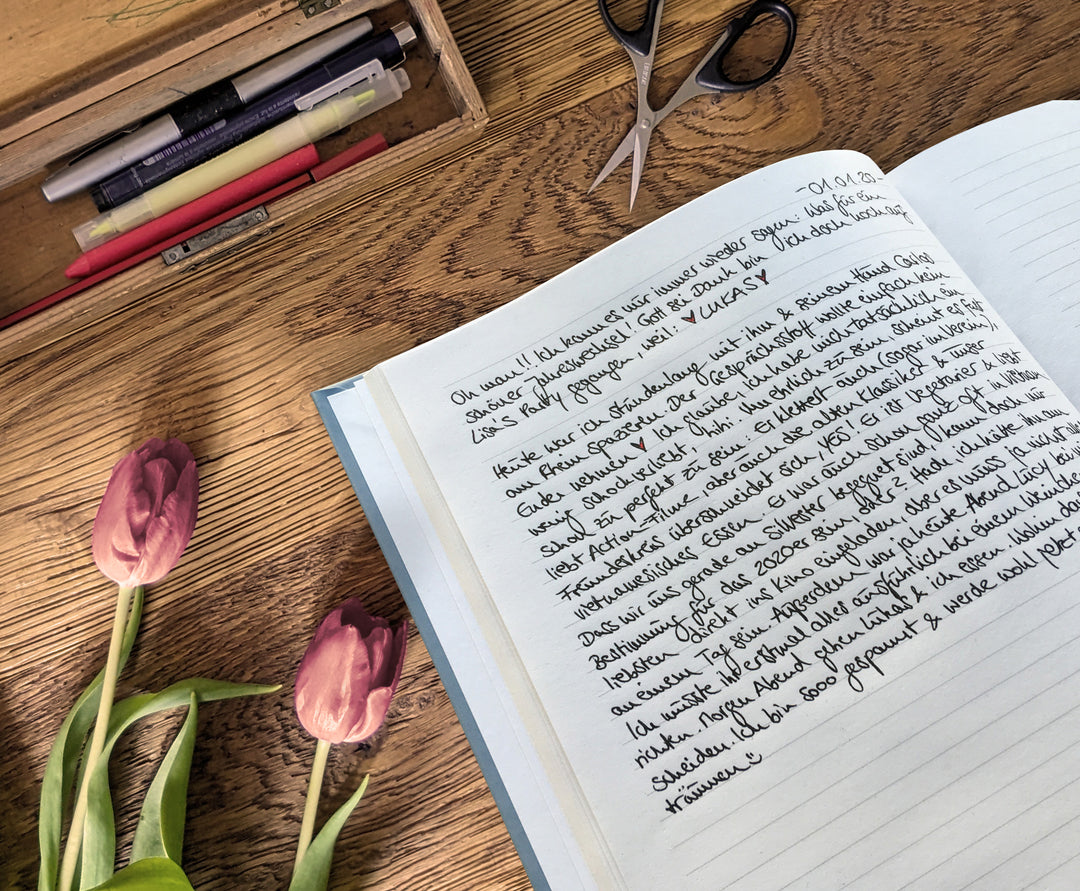 -01.01.20-
Oh man!! Ich kann es mir immer wieder sagen: Was für ein
schöner Jahreswechsel! Gott sei Dank bin ich doch noch auf
Lisa's Party gegangen, weil: ♥LUKAS♥
Heute war ich stundenlang mit ihm & seinem Hund Carlos
am Rhein spazieren. Der Gesprächsstoff wollte einfach kein
Ende nehmen ♥ Ich glaube, ich habe mich tatsächlich ein
wenig schockverliebt, hihi. Um ehrlich zu sein, scheint es fast
schon zu perfekt zu sein: Er klettert auch (sogar im Verein),
liebt Action-Filme, aber auch die alten Klassiker & unser
Freundeskreis überschneidet sich, YES! Er ist Vegetarier & liebt
vietnamesisches Essen. Er war auch schon ganz oft in Vietnam
Dass wir uns gerade an Silvester begegnet sind, kann doch nur
Bestimmung für das 2020er sein, oder? Hach, ich habe ihn am
liebsten direkt ins Kino eingeladen, aber es muss ja nicht alles
an einem Tag sein. Außerdem war ja heute Abend Lucy bei
Ich musste ihr erstmal alles ausführlich bei einem
richten. Morgen Abend gehen Lukas & ich essen. Wohin
scheiden. Ich bin sooo gespannt & werde wohl jetzt
träumen ☺